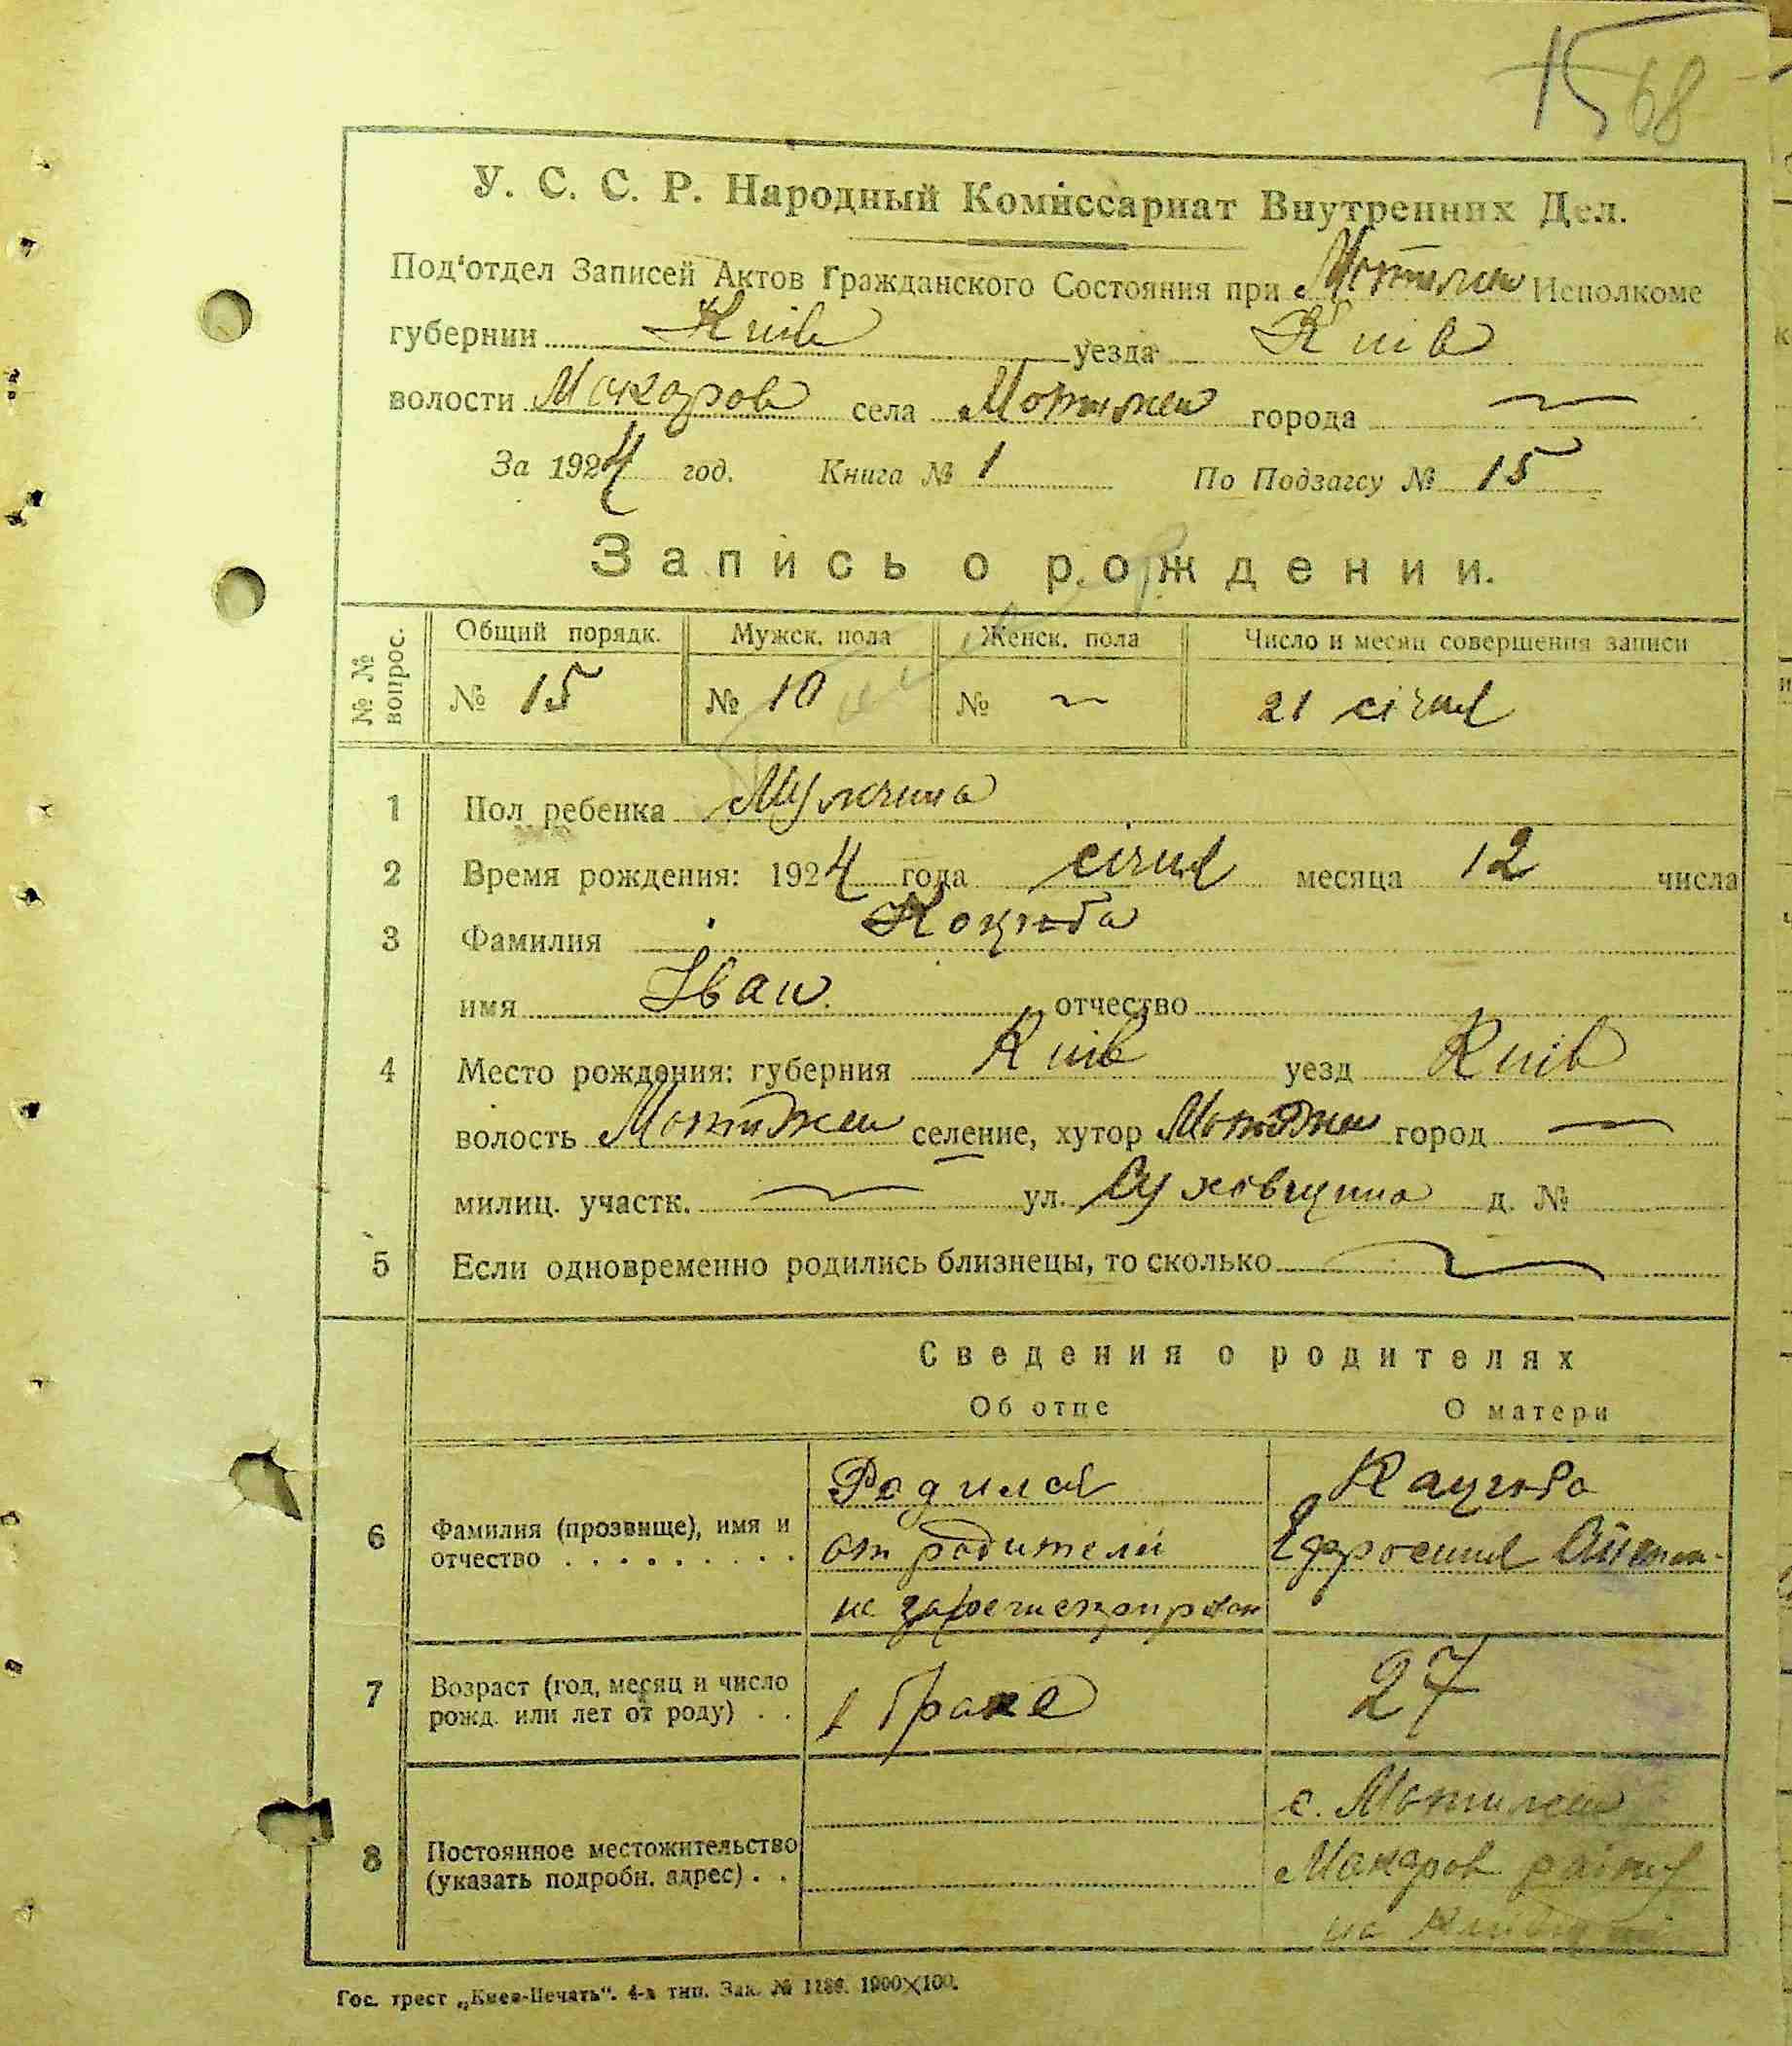 15 68
У. С. С. Р. Народный Комиссариат Внутренних Дел.
Под'отдел Записей Актов Гражданского Состояния при Мотижин Исполкоме
губернии Київ уезда Київ
волости Макаров села Мотижин города —
За 1924 год. Книга № 1 По Подзагсу № 15
Запись о рождении.
№ № вопрос. Общий порядк. Мужск. пола Женск. пола Число и месяц совершения записи
№ 15 № 10 № — 21 січня
1 Пол ребенка Мужчина
2 Время рождения: 1924 года січня месяца 12 числа
3 Фамилия Коцюба
имя Іван. отчество
4 Место рождения: губерния Київ уезд Київ
волость Мотиджин селение, хутор Мотиджин город —
милиц. участк. — ул. д. №
5 Если одновременно родились близнецы, то сколько —
Сведения о родителях
Об отце О матери
6 Фамилия (прозвище), имя и отчество
Родился Кацюба
от родителей Ефросиния
не
7 Возраст (год, месяц и число рожд. или лет от роду) . .
в браке 27
8 Постоянное местожительство (указать подробн. адрес) . .
с. Мотижин
Макаров району
на
Гос. трест „Киев-Печать". 4-я тип. Зак. № 1186. 1000×100.